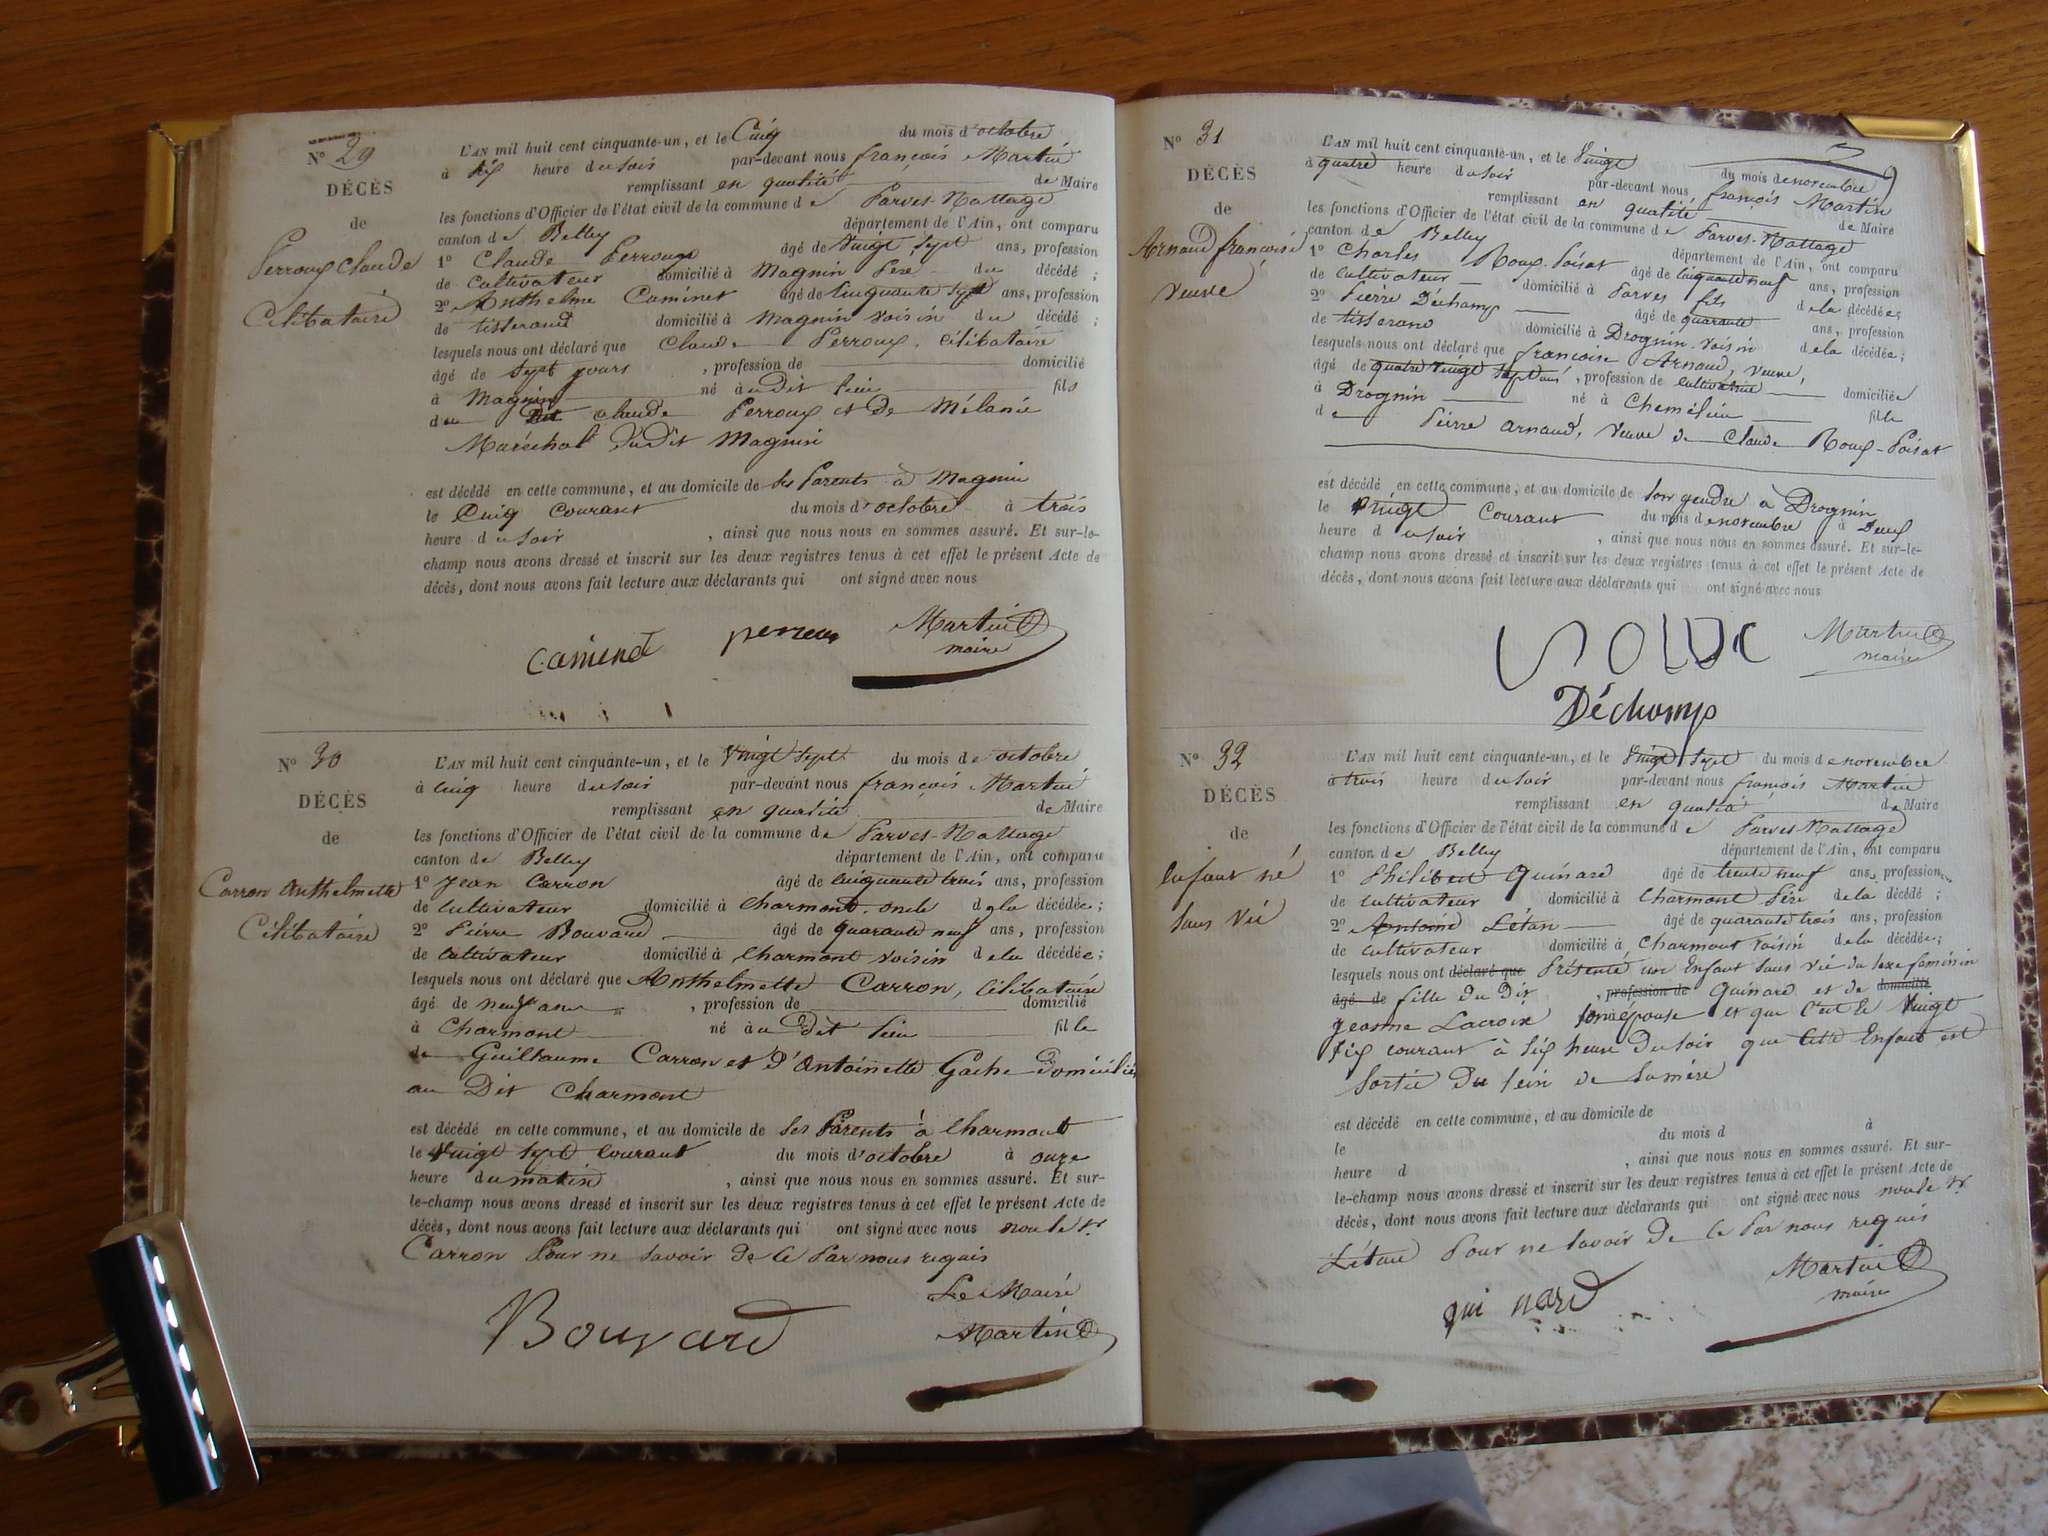 N° 29
DÉCÈS
de
Perroux Claude
Célibataire
L'AN mil huit cent cinquante-un, et le Cinq du mois d'octobre
à six heure du soir par-devant nous françois Martin
remplissant en qualité de Maire
les fonctions d'Officier de l'état civil de la commune de Parves-Nattage
canton de Belley département de l'Ain, ont comparu
1° Claude Perroux âgé de vingt sept ans, profession
de cultivateur domicilié à Magnin Père du décédé ;
2° Anthelme Caminet âgé de cinquante sept ans, profession
de tisserand domicilié à Magnin voisin du décédé ;
lesquels nous ont déclaré que Claude Perroux, célibataire
âgé de sept jours , profession de domicilié
à Magnin né à u dit lieu fils
du Claude Perroux et de Mélanie
Maréchal du dit Magnin
est décédé en cette commune, et au domicile de ses Parents à Magnin
le Cinq courant du mois d'octobre à trois
heure du soir , ainsi que nous nous en sommes assuré. Et sur-le-
champ nous avons dressé et inscrit sur les deux registres tenus à cet effet le présent Acte de
décès, dont nous avons fait lecture aux déclarants qui ont signé avec nous
caminet perroux Martin
maire
N° 30
DÉCÈS
de
Carron Anthelmette
Célibataire
L'AN mil huit cent cinquante-un, et le vingt sept du mois de octobre
à cinq heure du soir par-devant nous françois Martin
remplissant en qualité de Maire
les fonctions d'Officier de l'état civil de la commune de Parves-Nattage
canton de Belley département de l'Ain, ont comparu
1° Jean Carron âgé de cinquante trois ans, profession
de cultivateur domicilié à Charmont. oncle de la décédée ;
2° Pierre Bouvard âgé de quarante neuf ans, profession
de cultivateur domicilié à Charmont voisin de la décédée ;
lesquels nous ont déclaré que Anthelmette Carron, célibataire
âgé de neuf ans , profession de domicilié
à Charmont né à u Dit lieu fille
de Guillaume Carron et d'Antoinette Gache domiciliés
au Dit Charmont
est décédé en cette commune, et au domicile de ses Parents à Charmont
le vingt sept courant du mois d'octobre à onze
heure du matin , ainsi que nous nous en sommes assuré. Et sur-
le-champ nous avons dressé et inscrit sur les deux registres tenus à cet effet le présent Acte de
décès, dont nous avons fait lecture aux déclarants qui ont signé avec nous non le Sr.
Carron Pour ne savoir de ce Par nous requis
Le Maire
Bouvard Martin
N° 31
DÉCÈS
de
Arnaud françoise
veuve
L'AN mil huit cent cinquante-un, et le vingt du mois de novembre
à quatre heure du soir par-devant nous françois Martin
remplissant en qualité de Maire
les fonctions d'Officier de l'état civil de la commune de Parves-Nattage
canton de Belley département de l'Ain, ont comparu
1° Charles Roux-Poisat âgé de cinquante neuf ans, profession
de cultivateur domicilié à Parves fils de la décédée ;
2° Pierre Déchamp âgé de quarante ans, profession
de tisserand domicilié à Drognin voisin de la décédée ;
lesquels nous ont déclaré que françoise Arnaud, veuve,
âgé de quatre vingt sept ans , profession de cultivatrice domiciliée
à Drognin né à Chemélieu fille
de Pierre Arnaud, veuve de Claude Roux-Poisat
est décédé en cette commune, et au domicile de son gendre à Drognin
le vingt courant du mois de novembre à Deux
heure du soir , ainsi que nous nous en sommes assuré. Et sur-le-
champ nous avons dressé et inscrit sur les deux registres tenus à cet effet le présent Acte de
décès, dont nous avons fait lecture aux déclarants qui ont signé avec nous
Martin
maire
Déchamp
N° 32
DÉCÈS
de
Enfant né
sans vie
L'AN mil huit cent cinquante-un, et le vingt sept du mois de novembre
à trois heure du soir par-devant nous françois Martin
remplissant en qualité de Maire
les fonctions d'Officier de l'état civil de la commune de Parves-Nattage
canton de Belley département de l'Ain, ont comparu
1° Philibert Quinard âgé de trente neuf ans, profession
de cultivateur domicilié à Charmont Père de la décédé ;
2° Antoine Létan âgé de quarante trois ans, profession
de cultivateur domicilié à Charmont voisin de la décédée ;
lesquels nous ont déclaré que Présenté un Enfant sans vie du sexe féminin
âgé de fille du Dit , profession de Quinard et de domicilié
Jeanne Lacroix son épouse et que c'est le vingt
six courant à six heure du soir que cette Enfant est
sortie du sein de sa mère
est décédé en cette commune, et au domicile de
le du mois d à
heure d , ainsi que nous nous en sommes assuré. Et sur-
le-champ nous avons dressé et inscrit sur les deux registres tenus à cet effet le présent Acte de
décès, dont nous avons fait lecture aux déclarants qui ont signé avec nous non le Sr.
Létan Pour ne savoir de ce Par nous requis
qui nard Martin
maire